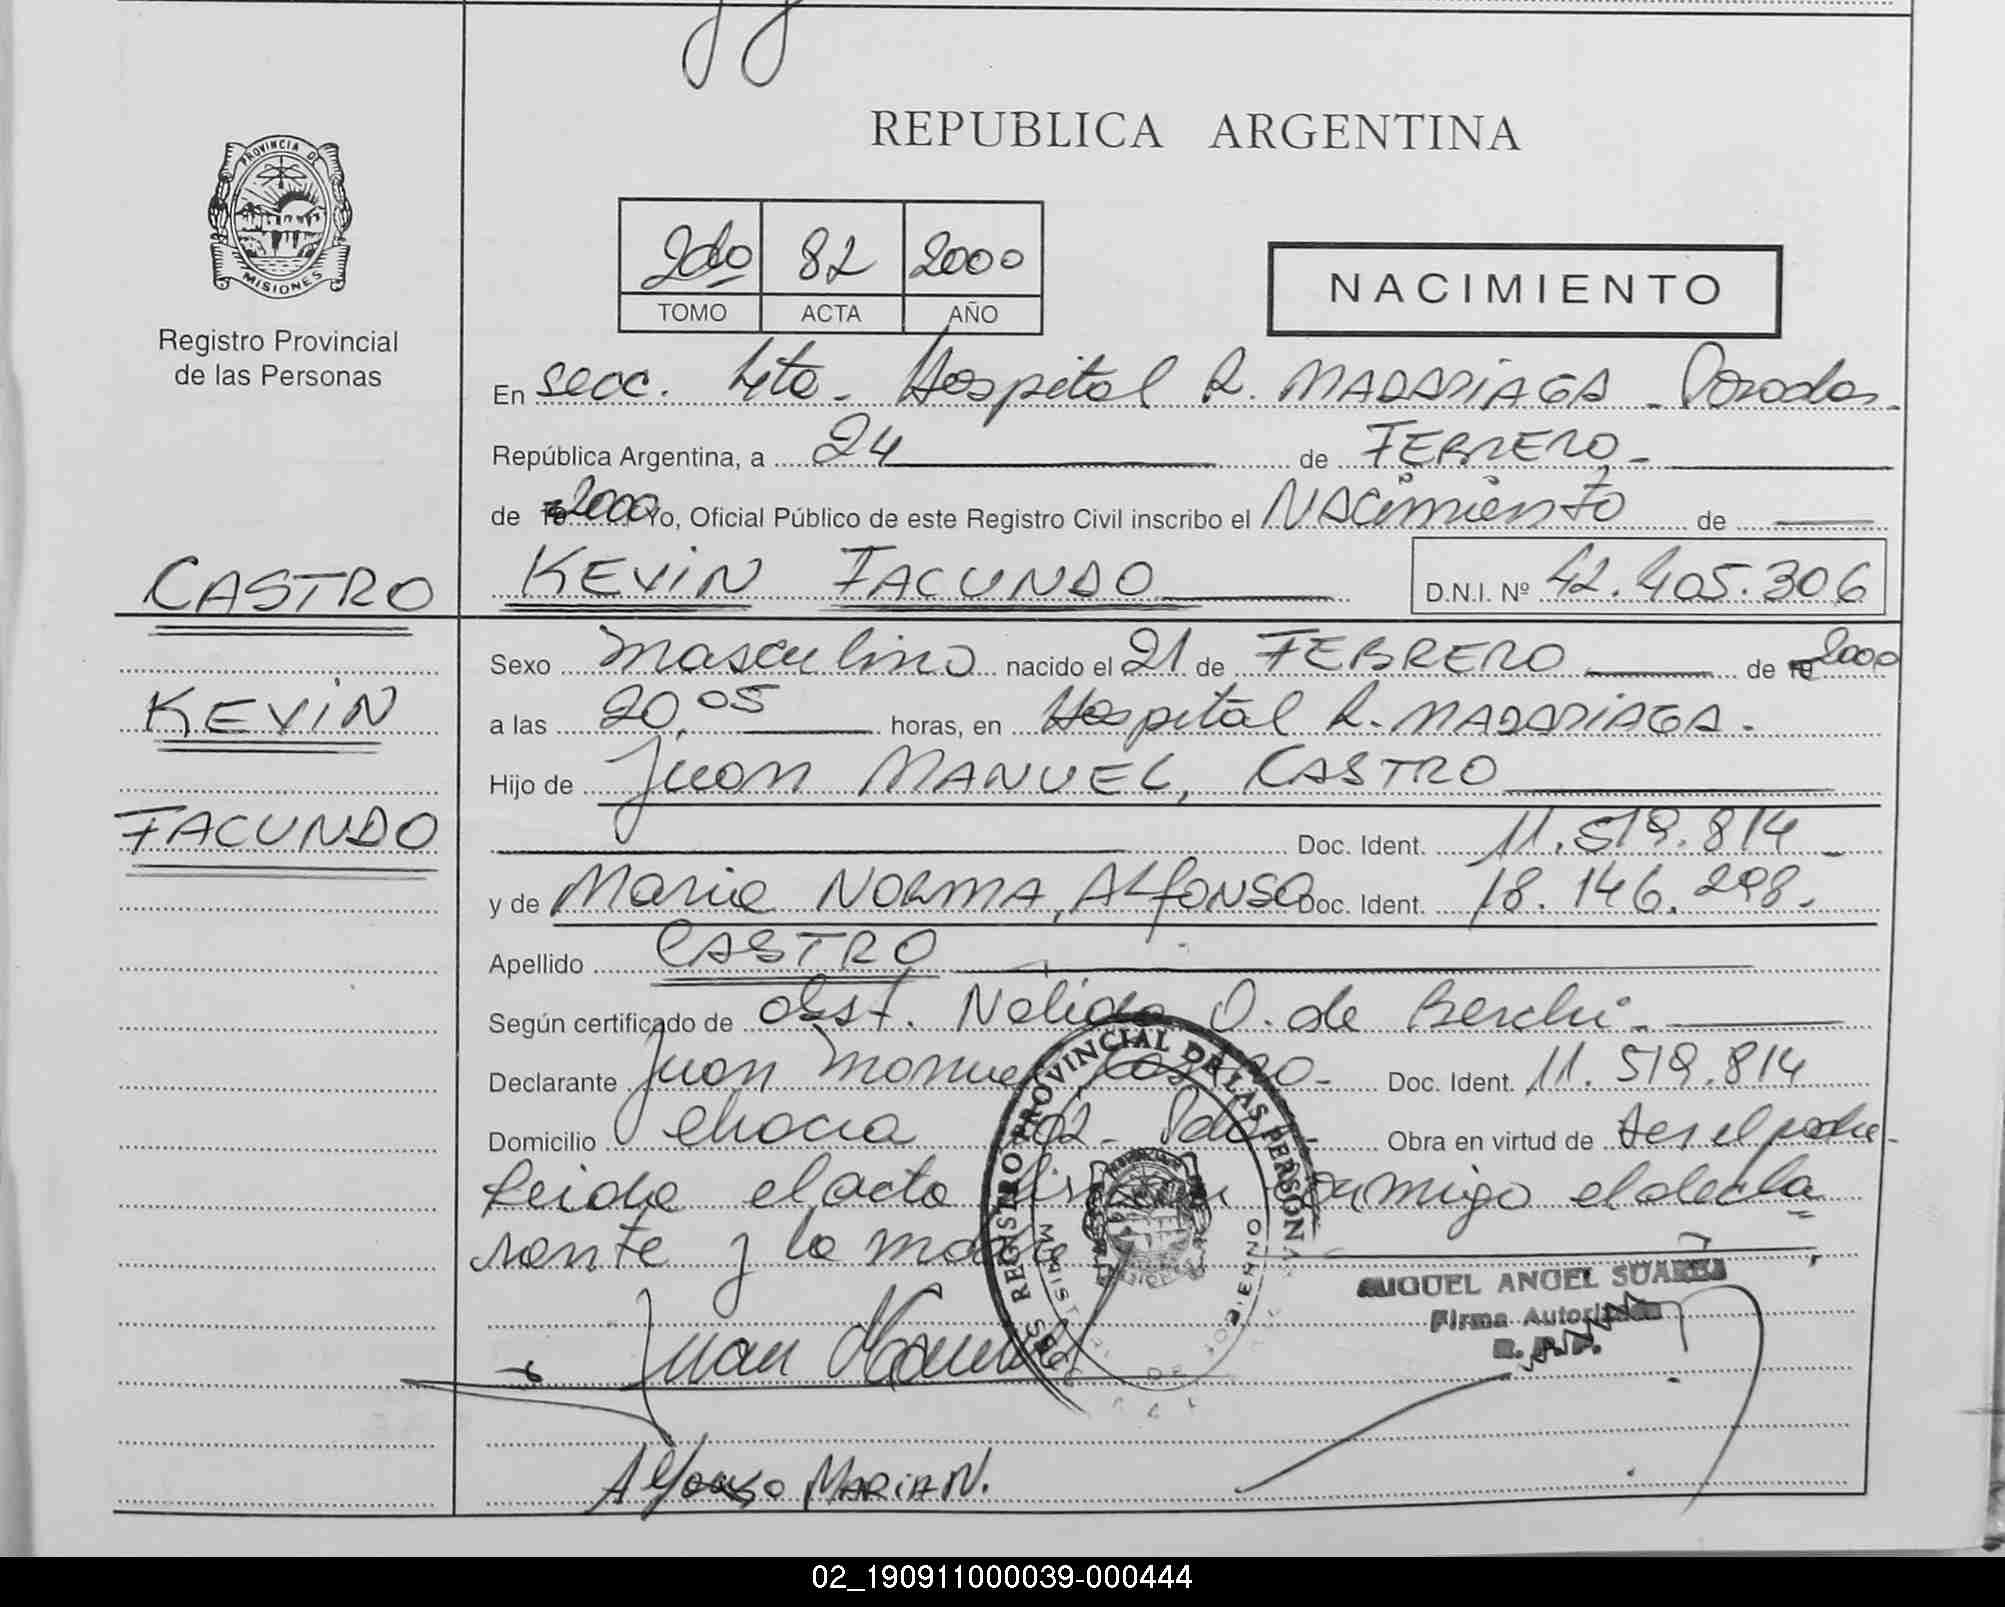 REPUBLICA ARGENTINA
PROVINCIA DE
MISIONES
Registro Provincial
de las Personas
2do 82 2000
TOMO ACTA AÑO
NACIMIENTO
En secc. 4ta. Hospital R. MADARIAGA - Posadas -
República Argentina, a 24 de FEBRERO -
de 2000 Yo, Oficial Público de este Registro Civil inscribo el NACimiento de
CASTRO
KEVIN FACUNDO D.N.I. Nº 42.405.306
Sexo masculino nacido el 21 de FEBRERO de 2000
KEVIN
a las 20,05 horas, en Hospital R. MADARIAGA.
Hijo de Juan MANUEL, CASTRO
FACUNDO
Doc. Ident. 11.519.814 -
y de Maria NORMA, ALfONSO Doc. Ident. 18.146.298.
Apellido CASTRO
Según certificado de obst. Nelida O. de Berchi -
Declarante Juan Manuel Castro - Doc. Ident. 11.519.814
Domicilio Obra en virtud de ser el padre -
Leida el acta firman conmigo el decla
rante y la madre
REGISTRO PROVINCIAL DE LAS PERSONAS
MINISTERIO DE GOBIERNO
MIGUEL ANGEL SUAREZ
Firma Autorizada
R. P. P.
Juan Manuel
Alfonso MARIA N.
02_190911000039-000444